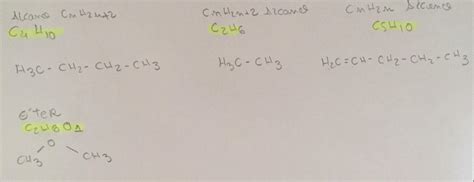 Alcanos CnH2n+2
C4H10
H3C - CH2 - CH2 - CH3
CnH2n+2 Alcanos
C2H6
H3C - CH3
CnH2n
C5H10
H2C=CH - CH2 - CH2 - CH3
ÉTER
C2H6O1
O
CH3 CH3